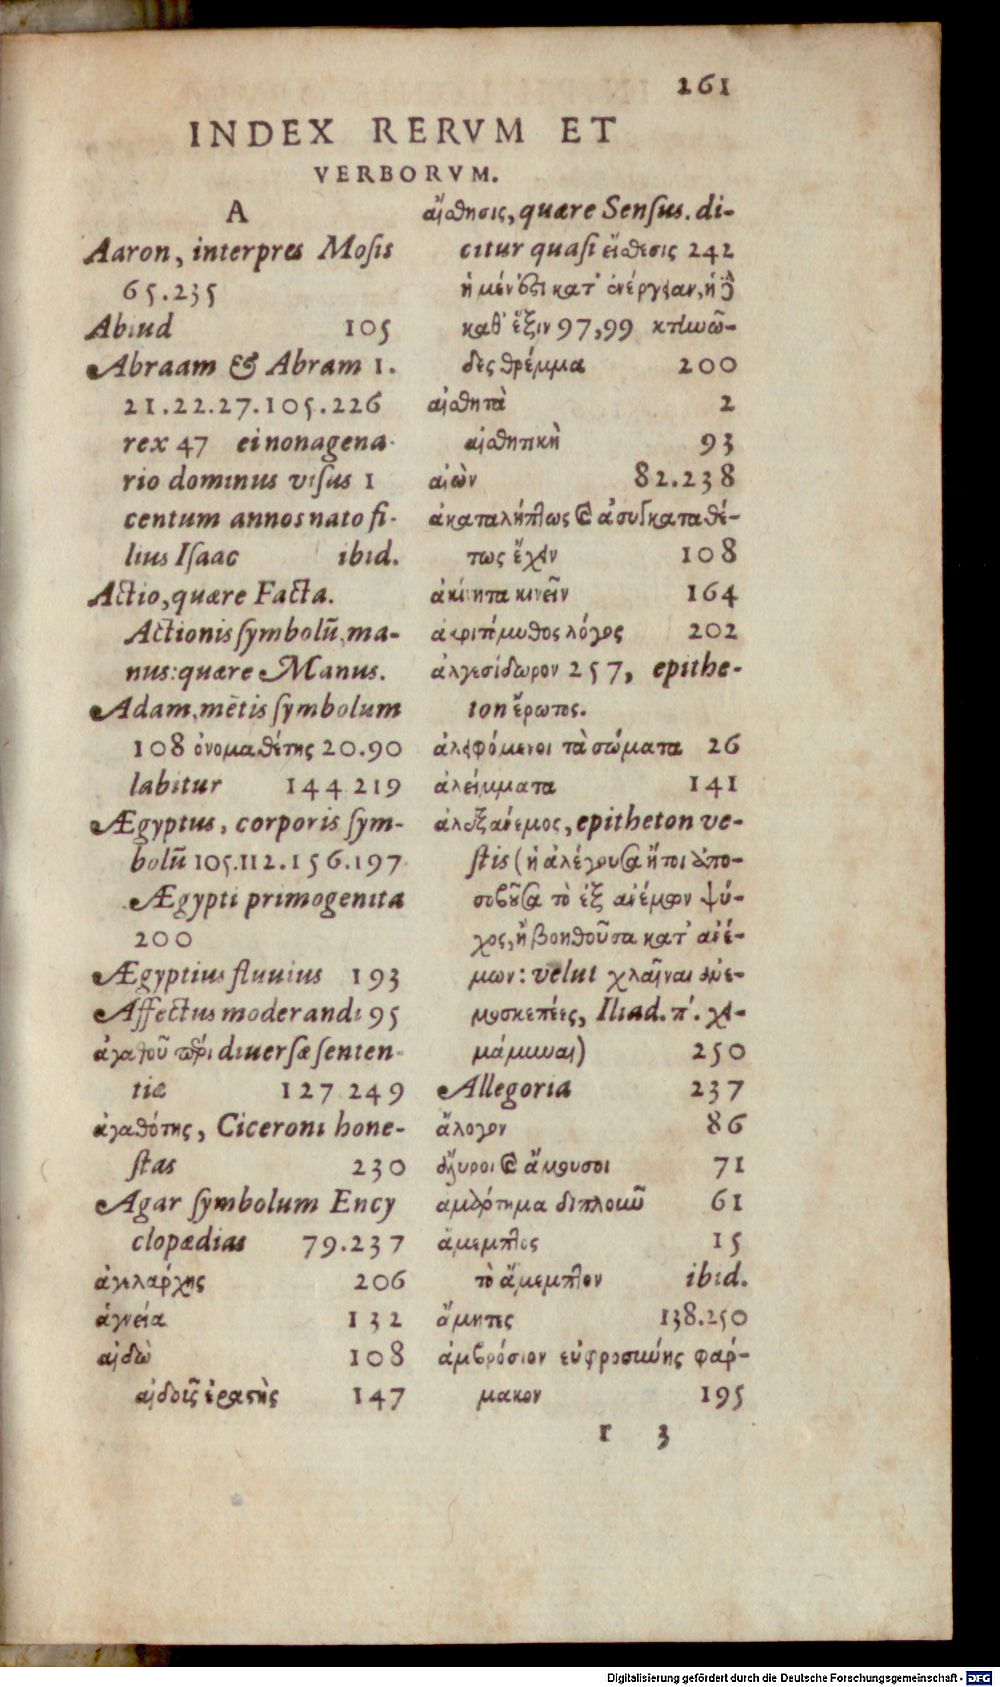 261
INDEX RERVM ET
VERBORVM.
A
Aaron, interpres Mosis
65.235
Abiud 105
Abraam & Abram 1.
21.22.27.105.226
rex 47 ei nonagena-
rio dominus visus 1
centum annos nato fi-
lius Isaac ibid.
Actio, quære Facta.
Actionis symbolũ, ma-
nus: quære Manus.
Adam, mẽtis symbolum
108 ὀνοματθέτης 20.90
labitur 144 219
Ægyptus, corporis sym-
bolũ 105.112.156.197
Ægypti primogenita
200
Ægyptius fluuius 193
Affectus moderandi 95
ἀγαθοῦ περὶ diuersæ senten-
tiæ 127 249
ἀγαθότης, Ciceroni hone-
stas 230
Agar symbolum Ency
clopædias 79.237
ἀγελάρχης 206
ἁγνεία 132
αἰδὼ 108
αἰδοῖς ἐραστὴς 147
αἴσθησις, quære Sensus. di-
citur quasi εἴσθεσις 242
ἡ μέν ἐστι κατ' ἐνέργειαν, ἡ δὲ
καθ' ἕξιν 97,99 κτηνώ-
δες θρέμμα 200
αἰσθητὰ 2
αἰσθητικὴ 93
αἰὼν 82.238
ἀκαταλήπτως καὶ ἀσυγκαταθέ-
τως ἔχειν 108
ἀκίνητα κινεῖν 164
ἀκριτόμυθος λόγος 202
ἀλγεσίδωρον 257, epithe-
ton ἔρωτος.
ἀλειφόμενοι τὰ σώματα 26
ἀλείμματα 141
ἀλεξάνεμος, epitheton ve-
stis (ἡ ἀλέγουσα ἤτοι ἀπο-
σοβοῦσα τὸ ἐξ ἀνέμων ψύ-
χος, ἢ βοηθοῦσα κατ' ἀνέ-
μων: velut χλαῖναι ἀνε-
μοσκεπέες, Iliad. π'. χει-
μάμυναι) 250
Allegoria 237
ἄλογον 86
ἄμυροι καὶ ἄμουσοι 71
ἁμάρτημα διπλοῦν 61
ἄμεμπτος 15
τὸ ἄμεμπτον ibid.
ἄμητες 138.250
ἀμβρόσιον εὐφροσύνης φάρ-
μακον 195
r 3
Digitalisierung gefördert durch die Deutsche Forschungsgemeinschaft - DFG